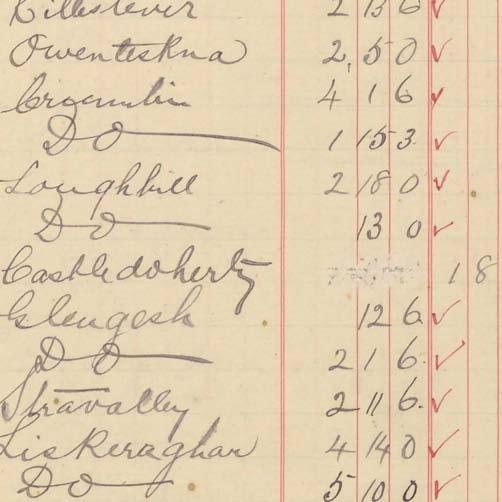 Killaslever 2 13 6 ✓
Owenteskna 2 5 0 ✓
Crumlin 4 1 6 ✓
DO 1 15 3 ✓
Loughhill 2 18 0 ✓
DO 13 0 ✓
Castledoherty 1 8
Glengesh 12 6 ✓
DO 2 1 6 ✓
Stravalley 2 11 6 ✓
Liskeraghan 4 14 0 ✓
DO 5 10 0 ✓